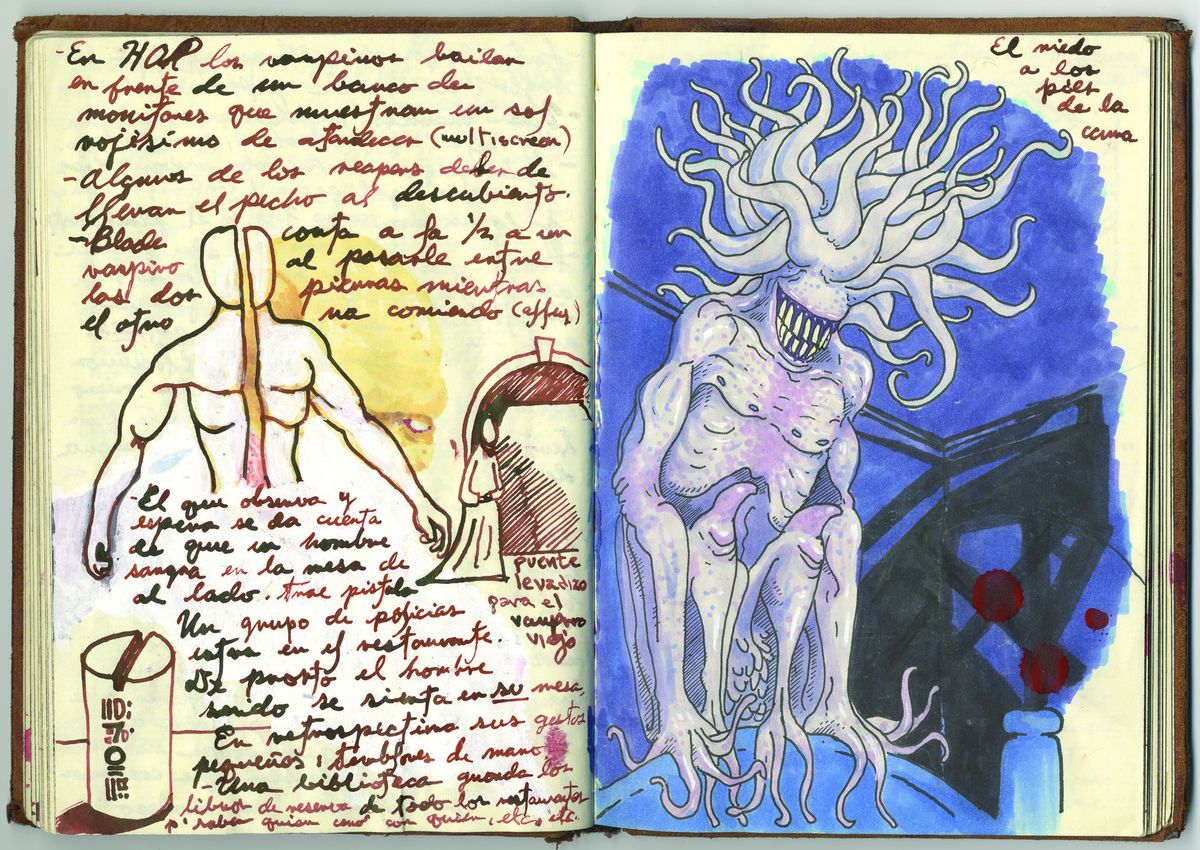 -En HOP los vampiros bailan
en frente de un banco de
monitores que muestran un sol
rojísimo de atardecer (multiscreen)
-Algunos de los reapers deben de
llevan el pecho al descubierto.
-Blade corta a la 1/2 a un
vampiro al pasarle entre
las dos piernas mientras
el otro va corriendo (effex)
-El que observa y
espera se da cuenta
de que un hombre
sangra en la mesa de
al lado. trae pistola
Un grupo de policías
entra en el restaurante.
De pronto el hombre
herido se sienta en su mesa.
En retrospectiva sus gestos
pequeños; temblores de mano
-Una biblioteca guarda los
libros de reserva de todos los restaurantes
p' saber quien cenó con quién, etc, etc.
puente
levadizo
para el
vampiro
viejo
El miedo
a los
pies
de la
cama